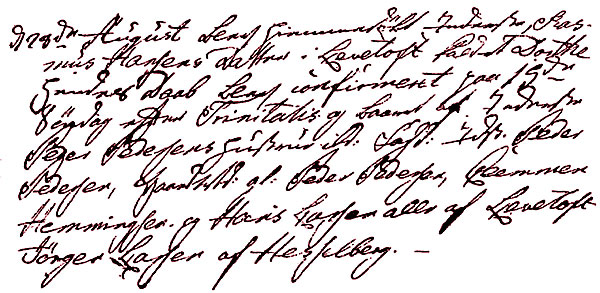 d 28de August blev hiemmedøbt Inderste, Ras-
mus Hansens Datter i Levetoft kaldet Dorthe
hendes Daab blev confirmeret paa 15de
Søndag efter Trinitatis og baaret af Inderste
Peder Pedersens Hustrue ibd: Test: Inds. Peder
Pedersen, gl: Peder Pedersen, Clemmen
Hemmingsen og Hans Larsen alle af Levetoft
Jørgen Larsen af Hesselberg. —